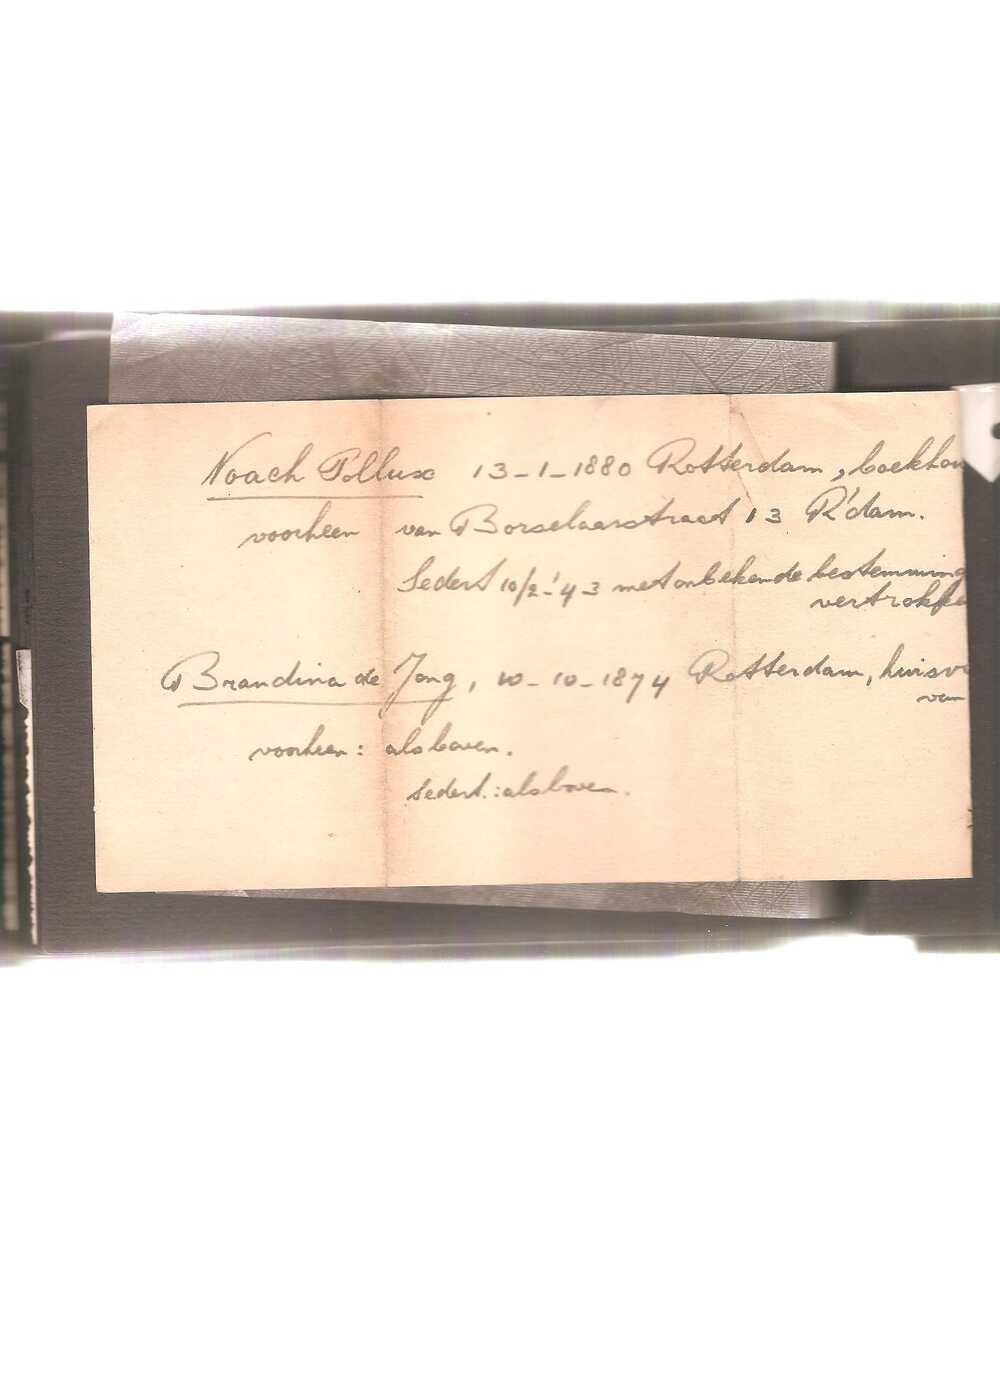 Noach Pollux 13-1-1880 Rotterdam, boekhou
voorheen van Borselaarstraat 13 R'dam.
Sedert 10/2-'43 met onbekende bestemming
vertrokke
Brandina de Jong, 10-10-1874 Rotterdam, huisv
van
voorheen: als boven.
sedert: als boven.